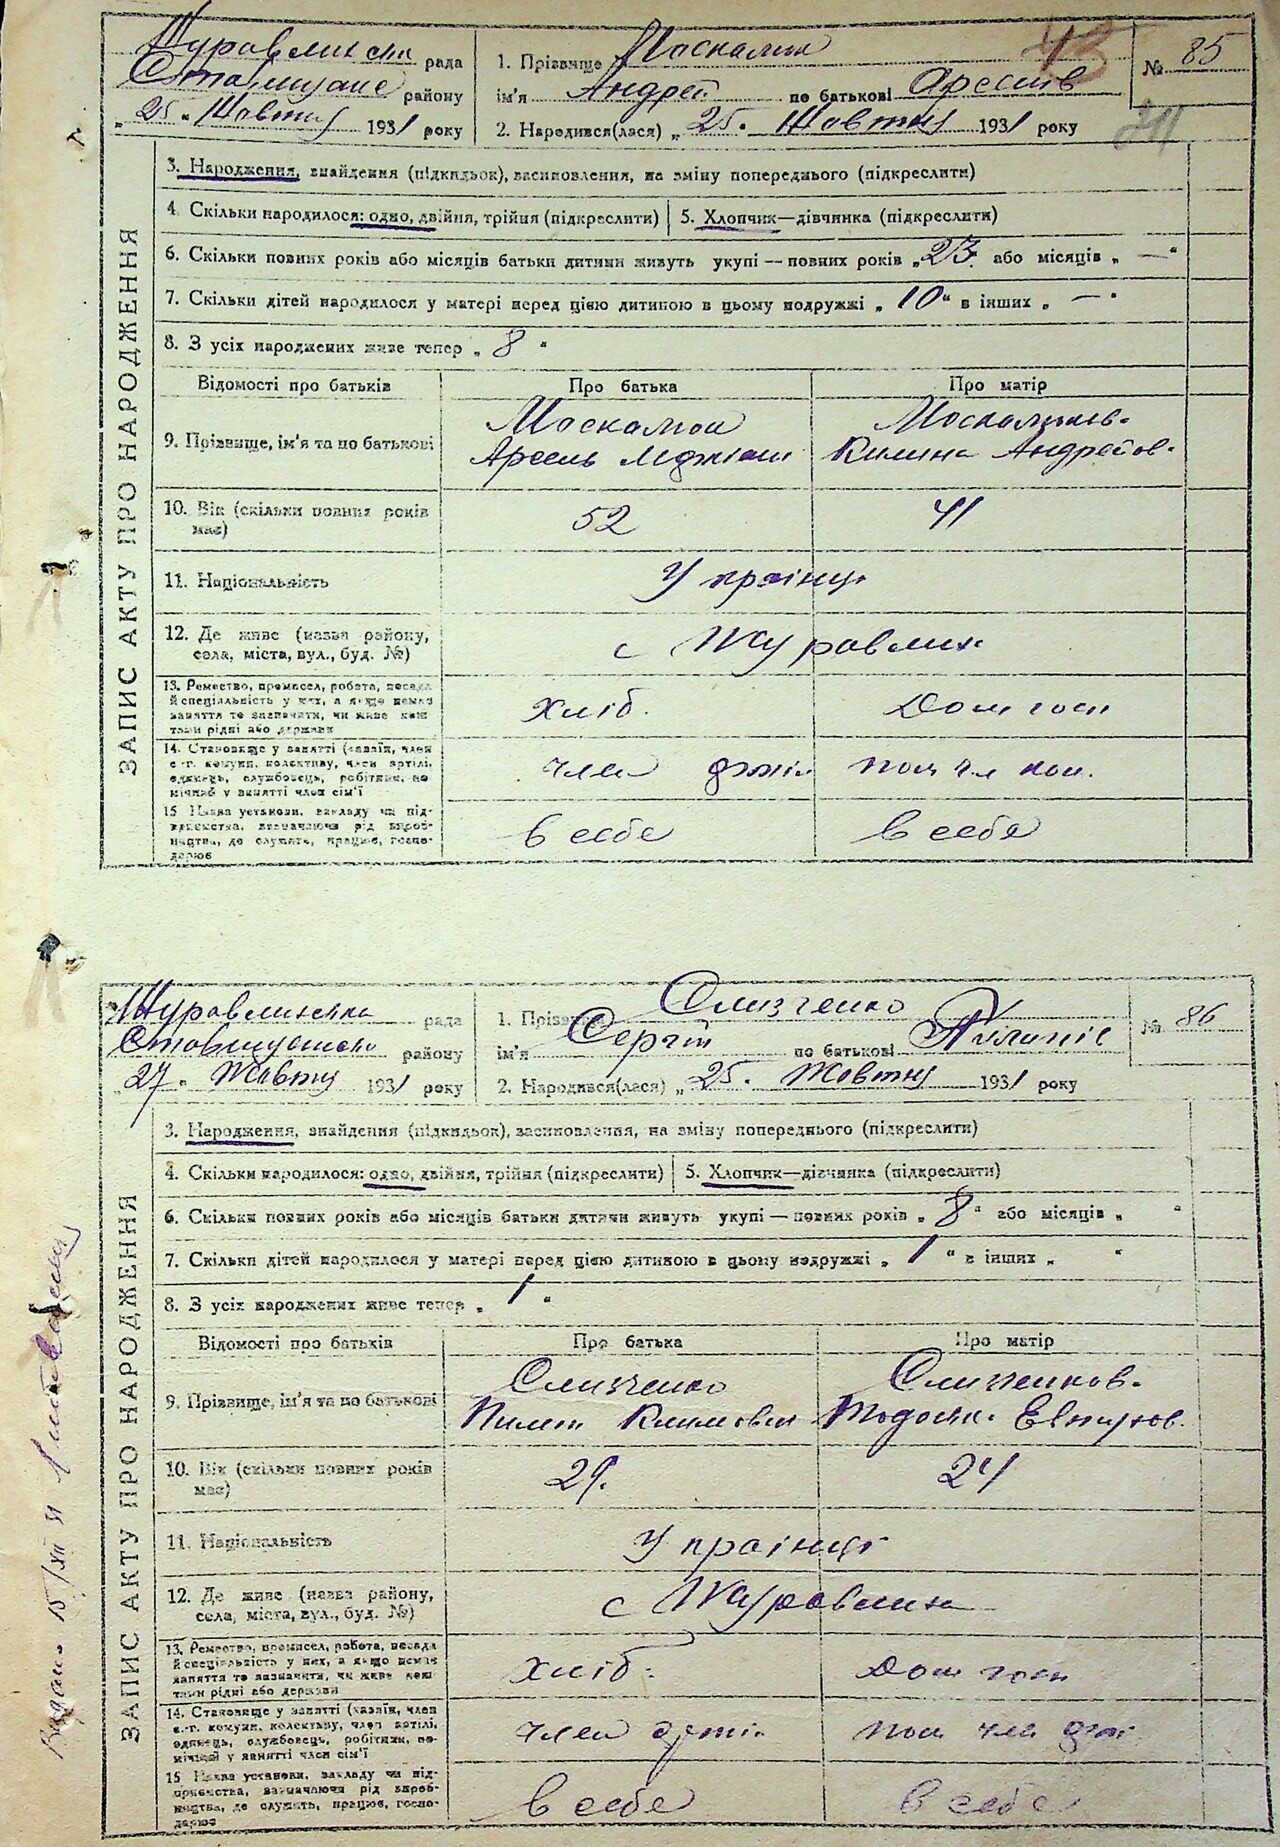 43
Журавлинська рада
Ставищанс району
„ 25 " Жовтня 1931 року
1. Прізвище Москалюк
ім'я Андрей по батькові Арсентів
2. Народився(лася) „ 25. Жовтня 1931 року
№ 85
ЗАПИС АКТУ ПРО НАРОДЖЕННЯ
3. Народження, знайдення (підкидьок), засиновлення, на зміну попереднього (підкреслити)
4. Скільки народилося: одно, двійня, трійня (підкреслити)
5. Хлопчик—дівчинка (підкреслити)
6. Скільки повних років або місяців батьки дитини живуть укупі — повних років „ 23. або місяців „ — "
7. Скільки дітей народилося у матері перед цією дитиною в цьому подружжі „ 10 " в інших „ — "
8. З усіх народжених живе тепер „ 8 "
Відомості про батьків Про батька Про матір
9. Прізвище, ім'я та по батькові
Москалюк
Килина Андреїов.
10. Вік (скільки повних років має) 52 41
11. Національність Українці
12. Де живе (назва району, села, міста, вул., буд. №) с Журавлиха
13. Ремество, промисел, робота, посада
й спеціальність у них, а якщо немає
заняття то зазначити, чи живе кош
тами рідні або держави
Хліб. Дом госп
14. Становище у занятті (хазяїн, член
с.-г. комуни, колективу, член артілі,
одинець, службовець, робітник, по-
мічний у занятті член сім'ї
член артіл пом чл
15 Назва установи, закладу чи під-
приємства, зазначаючи рід вироб-
ництва, де служить, працює, госпо-
дарює
в себе в себе
Журавлинська рада
Ставищансько району
„ 27. Жовтня 1931 року
1. Прізвище Слизченко
ім'я Сергій по батькові Пилипів
2. Народився(лася) „ 25. Жовтня 1931 року
№ 86
ЗАПИС АКТУ ПРО НАРОДЖЕННЯ
3. Народження, знайдення (підкидьок), засиновлення, на зміну попереднього (підкреслити)
4. Скільки народилося: одно, двійня, трійня (підкреслити)
5. Хлопчик—дівчинка (підкреслити)
6. Скільки повних років або місяців батьки дитини живуть укупі — повних років „ 8 " або місяців „ "
7. Скільки дітей народилося у матері перед цією дитиною в цьому подружжі „ 1 " в інших „ "
8. З усіх народжених живе тепер „ 1 "
Відомості про батьків Про батька Про матір
9. Прізвище, ім'я та по батькові
Слизченко Слизченков.
Пилип Климович Тодоська
10. Вік (скільки повних років має) 29. 24
11. Національність Українці
12. Де живе (назва району, села, міста, вул., буд. №) с Журавлиха
13. Ремество, промисел, робота, посада
й спеціальність у них, а якщо немає
заняття то зазначити, чи живе кош
тами рідні або держави
Хліб. Дом госп
14. Становище у занятті (хазяїн, член
с.-г. комуни, колективу, член артілі,
одинець, службовець, робітник, по-
мічний у занятті член сім'ї
член артіл. пом чл арт
15 Назва установи, закладу чи під-
приємства, зазначаючи рід вироб-
ництва, де служить, працює, госпо-
дарює
в себе в себе
15/XII 31